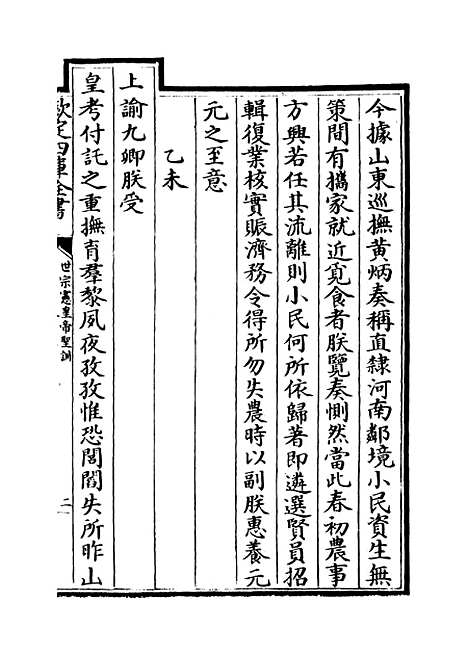 今據山東巡撫黄炳奏稱直隸河南鄰境小民資生無
策間有攜家就近覓食者朕覽奏惻然當此春初農事
方興若任其流離則小民何所依歸著即遴選賢員招
輯復業核實賑濟務令得所勿失農時以副朕惠養元
元之至意
乙未
上諭九卿朕受
皇考付託之重撫育羣黎夙夜孜孜惟恐閭閻失所昨山
欽定四庫全書
世宗憲皇帝聖訓
二